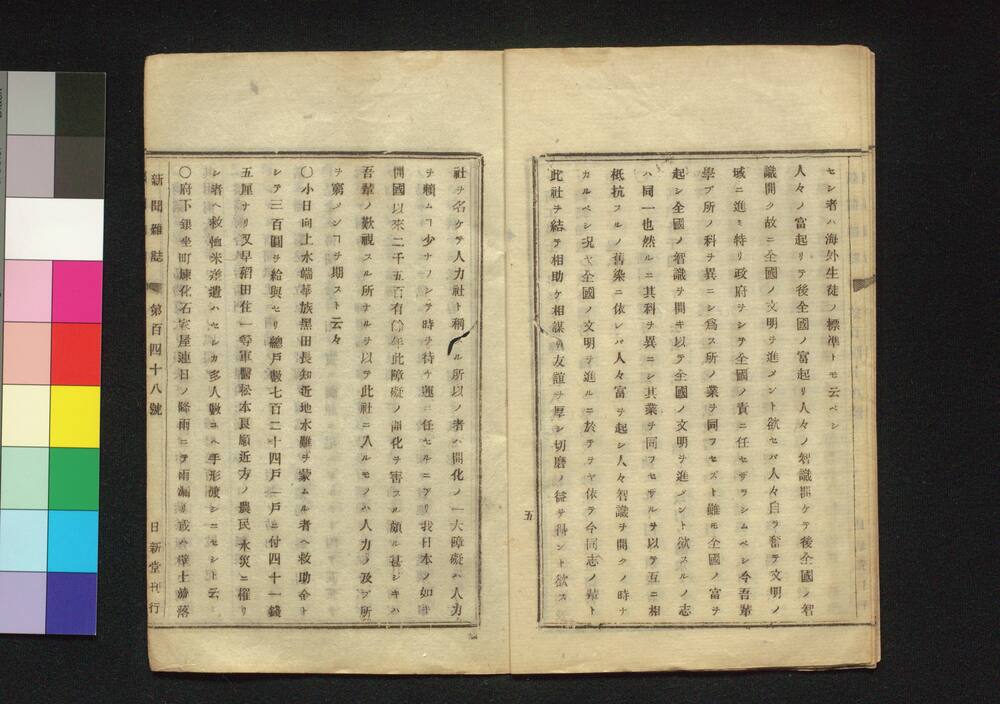 セシ者ハ海外生徒ノ標準トモ云ベシ
人々ノ富起リテ後全國ノ富起リ人々ノ智識開ケテ後全國ノ智
識開ク故ニ全國ノ文明ヲ進メント欲セバ人々自ラ奮テ文明ノ
域ニ進ミ特リ政府ヲシテ全國ノ責ニ任セザラシムベシ今吾輩
學ブ所ノ科ヲ異ニシ爲ス所ノ業ヲ同フセズト雖モ全國ノ富ヲ
起シ全國ノ智識ヲ開キ以テ全國ノ文明ヲ進メント欲スルノ志
ハ同一也然ルニ其科ヲ異ニシ其業ヲ同フセザルヲ以テ互ニ相
抵抗スルノ舊染ニ依レバ人々富ヲ起シ人々智識ヲ開クノ時ナ
カルベシ況ヤ全國ノ文明ヲ進ルニ於テヲヤ依テ今同志ノ輩ト
此社ヲ結テ相助ケ相謀リ友誼ヲ厚シ切磨ノ益ヲ得ント欲ス
五
社ヲ名ケテ人力社ト稱スル所以ノ者ハ開化ノ一大障礙ハ人力
ヲ頼ムコ少ナフシテ時ヲ待チ運ニ任セルニアリ我日本ノ如キ
開國以來二千五百有餘年此障礙ノ開化ヲ害スル頗ル甚ジキハ
吾輩ノ歎視スル所ナルヲ以テ此社ニ入ルモノハ人力ノ及ブ所
ヲ窮メンコヲ期スト云々
〇小日向上水端華族黒田長知近地水難ヲ蒙ムル者ヘ救助金ト
シテ三百圓ヲ給與セリ總戸數七百二十四戸一戸ニ付四十一錢
五厘ナリ又早稻田住一等軍醫松本良順近方ノ農民水災ニ罹リ
シ者ヘ救恤米差遣ハセシカ多人數ユヘ手形渡シニセシト云
〇府下銀坐町煉化石家屋連日ノ降雨ニテ雨漏リ或ハ壁土墜落
新聞雜誌 第百四十八號 日新堂刊行